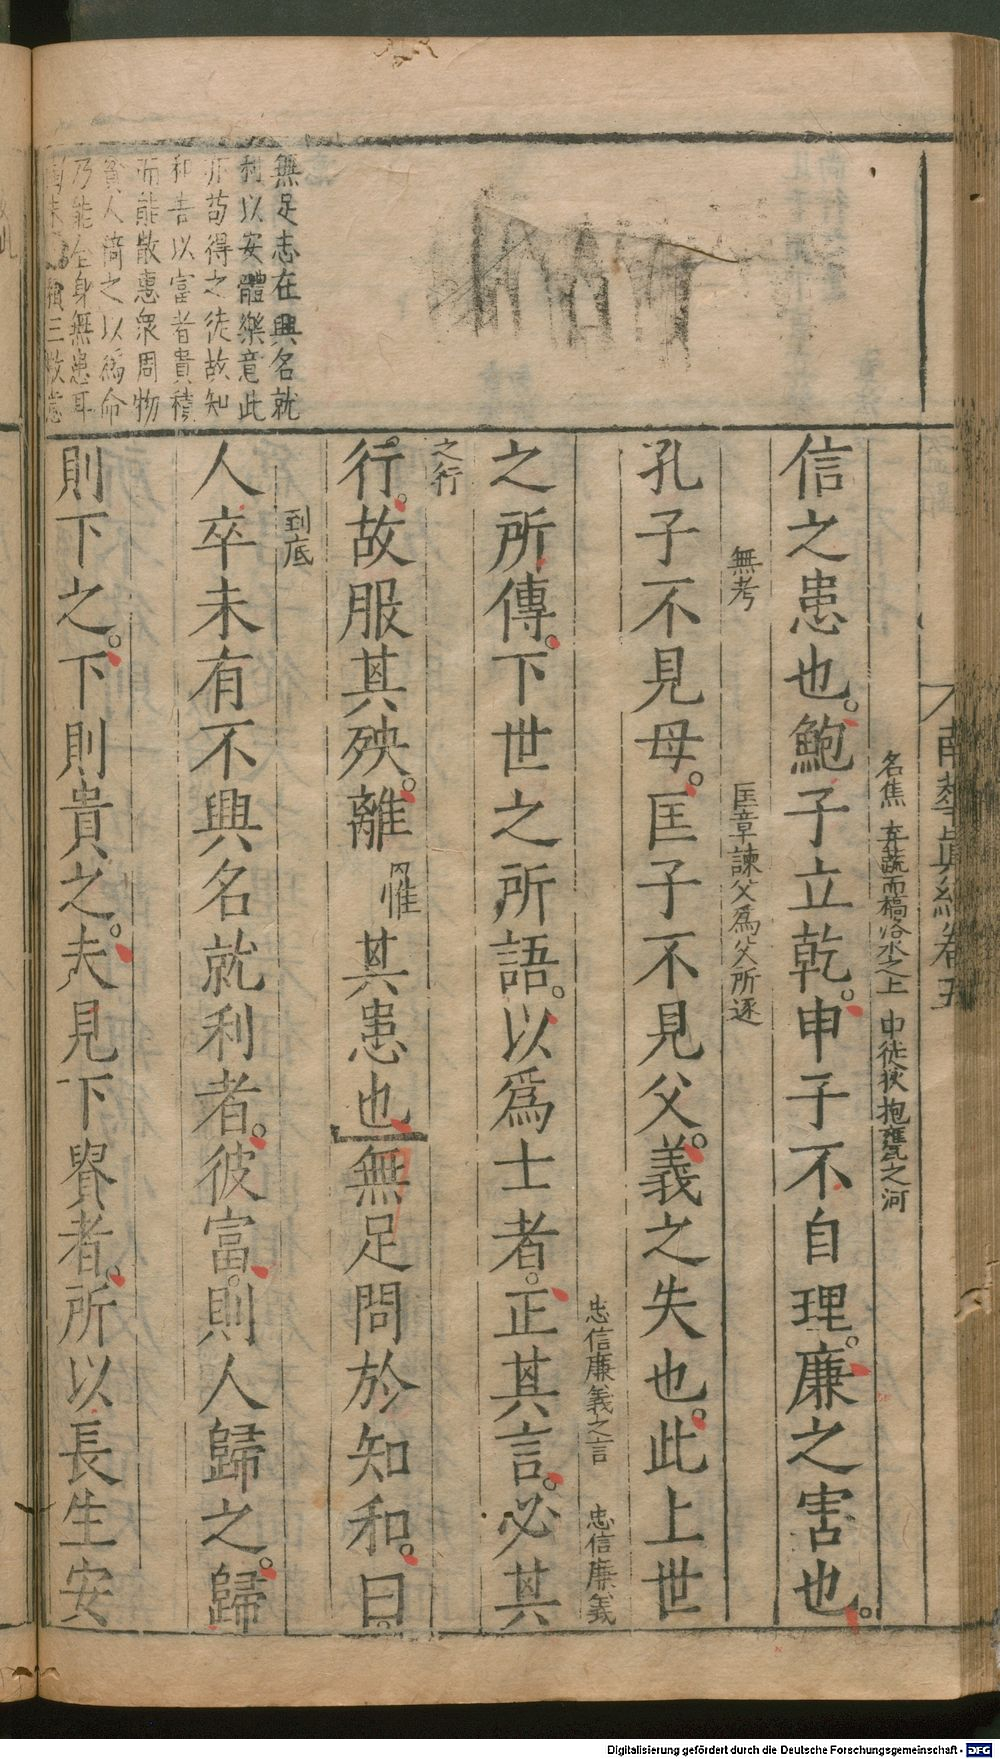 南華真經卷五
名焦 弃蔬而槁洛水之上 申徒狄抱甕之河
信之患也鮑子立乾申子不自理廉之害也
無考 匡章諫父爲父所逐
孔子不見母匡子不見父義之失也此上世
忠信廉義之言 忠信廉義
之所傳下世之所語以爲士者正其言必其
之行
行故服其殃離 惟 其患也無足問於知和曰
到底
人卒未有不興名就利者彼富則人歸之歸
則下之下則貴之夫見下貴者所以長生安
無足志在興名就
利以安體樂意此
亦苟得之徒故知
和告以富者貴積
而能散惠衆周物
貧人倚之以爲命
乃能全身無患耳
Digitalisierung gefördert durch die Deutsche Forschungsgemeinschaft - DFG